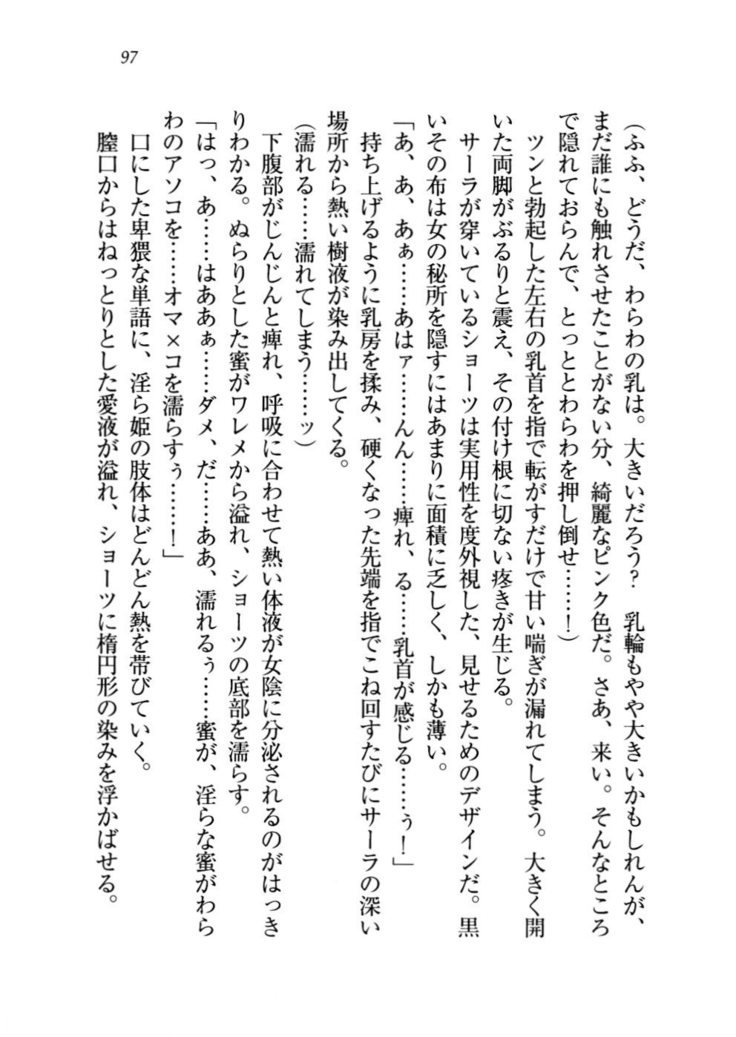 97
(ふふ、どうだ、わらわの乳は。大きいだろう？　乳輪もやや大きいかもしれんが、
まだ誰にも触れさせたことがない分、綺麗なピンク色だ。さあ、来い。そんなところ
で隠れておらんで、とっととわらわを押し倒せ……！)
　ツンと勃起した左右の乳首を指で転がすだけで甘い喘ぎが漏れてしまう。大きく開
いた両脚がぶるりと震え、その付け根に切ない疼きが生じる。
　サーラが穿いているショーツは実用性を度外視した、見せるためのデザインだ。黒
いその布は女の秘所を隠すにはあまりに面積に乏しく、しかも薄い。
「あ、あ、あぁ……あはァ……んん……痺れ、る……乳首が感じる……ぅ！」
　持ち上げるように乳房を揉み、硬くなった先端を指でこね回すたびにサーラの深い
場所から熱い樹液が染み出してくる。
(濡れる……濡れてしまう……ッ)
　下腹部がじんじんと痺れ、呼吸に合わせて熱い体液が女陰に分泌されるのがはっき
りわかる。ぬらりとした蜜がワレメから溢れ、ショーツの底部を濡らす。
「はっ、あ……はああぁ……ダメ、だ……ああ、濡れるぅ……蜜が、淫らな蜜がわら
わのアソコを……オマ×コを濡らすぅ……！」
　口にした卑猥な単語に、淫ら姫の肢体はどんどん熱を帯びていく。
　膣口からはねっとりとした愛液が溢れ、ショーツに楕円形の染みを浮かばせる。